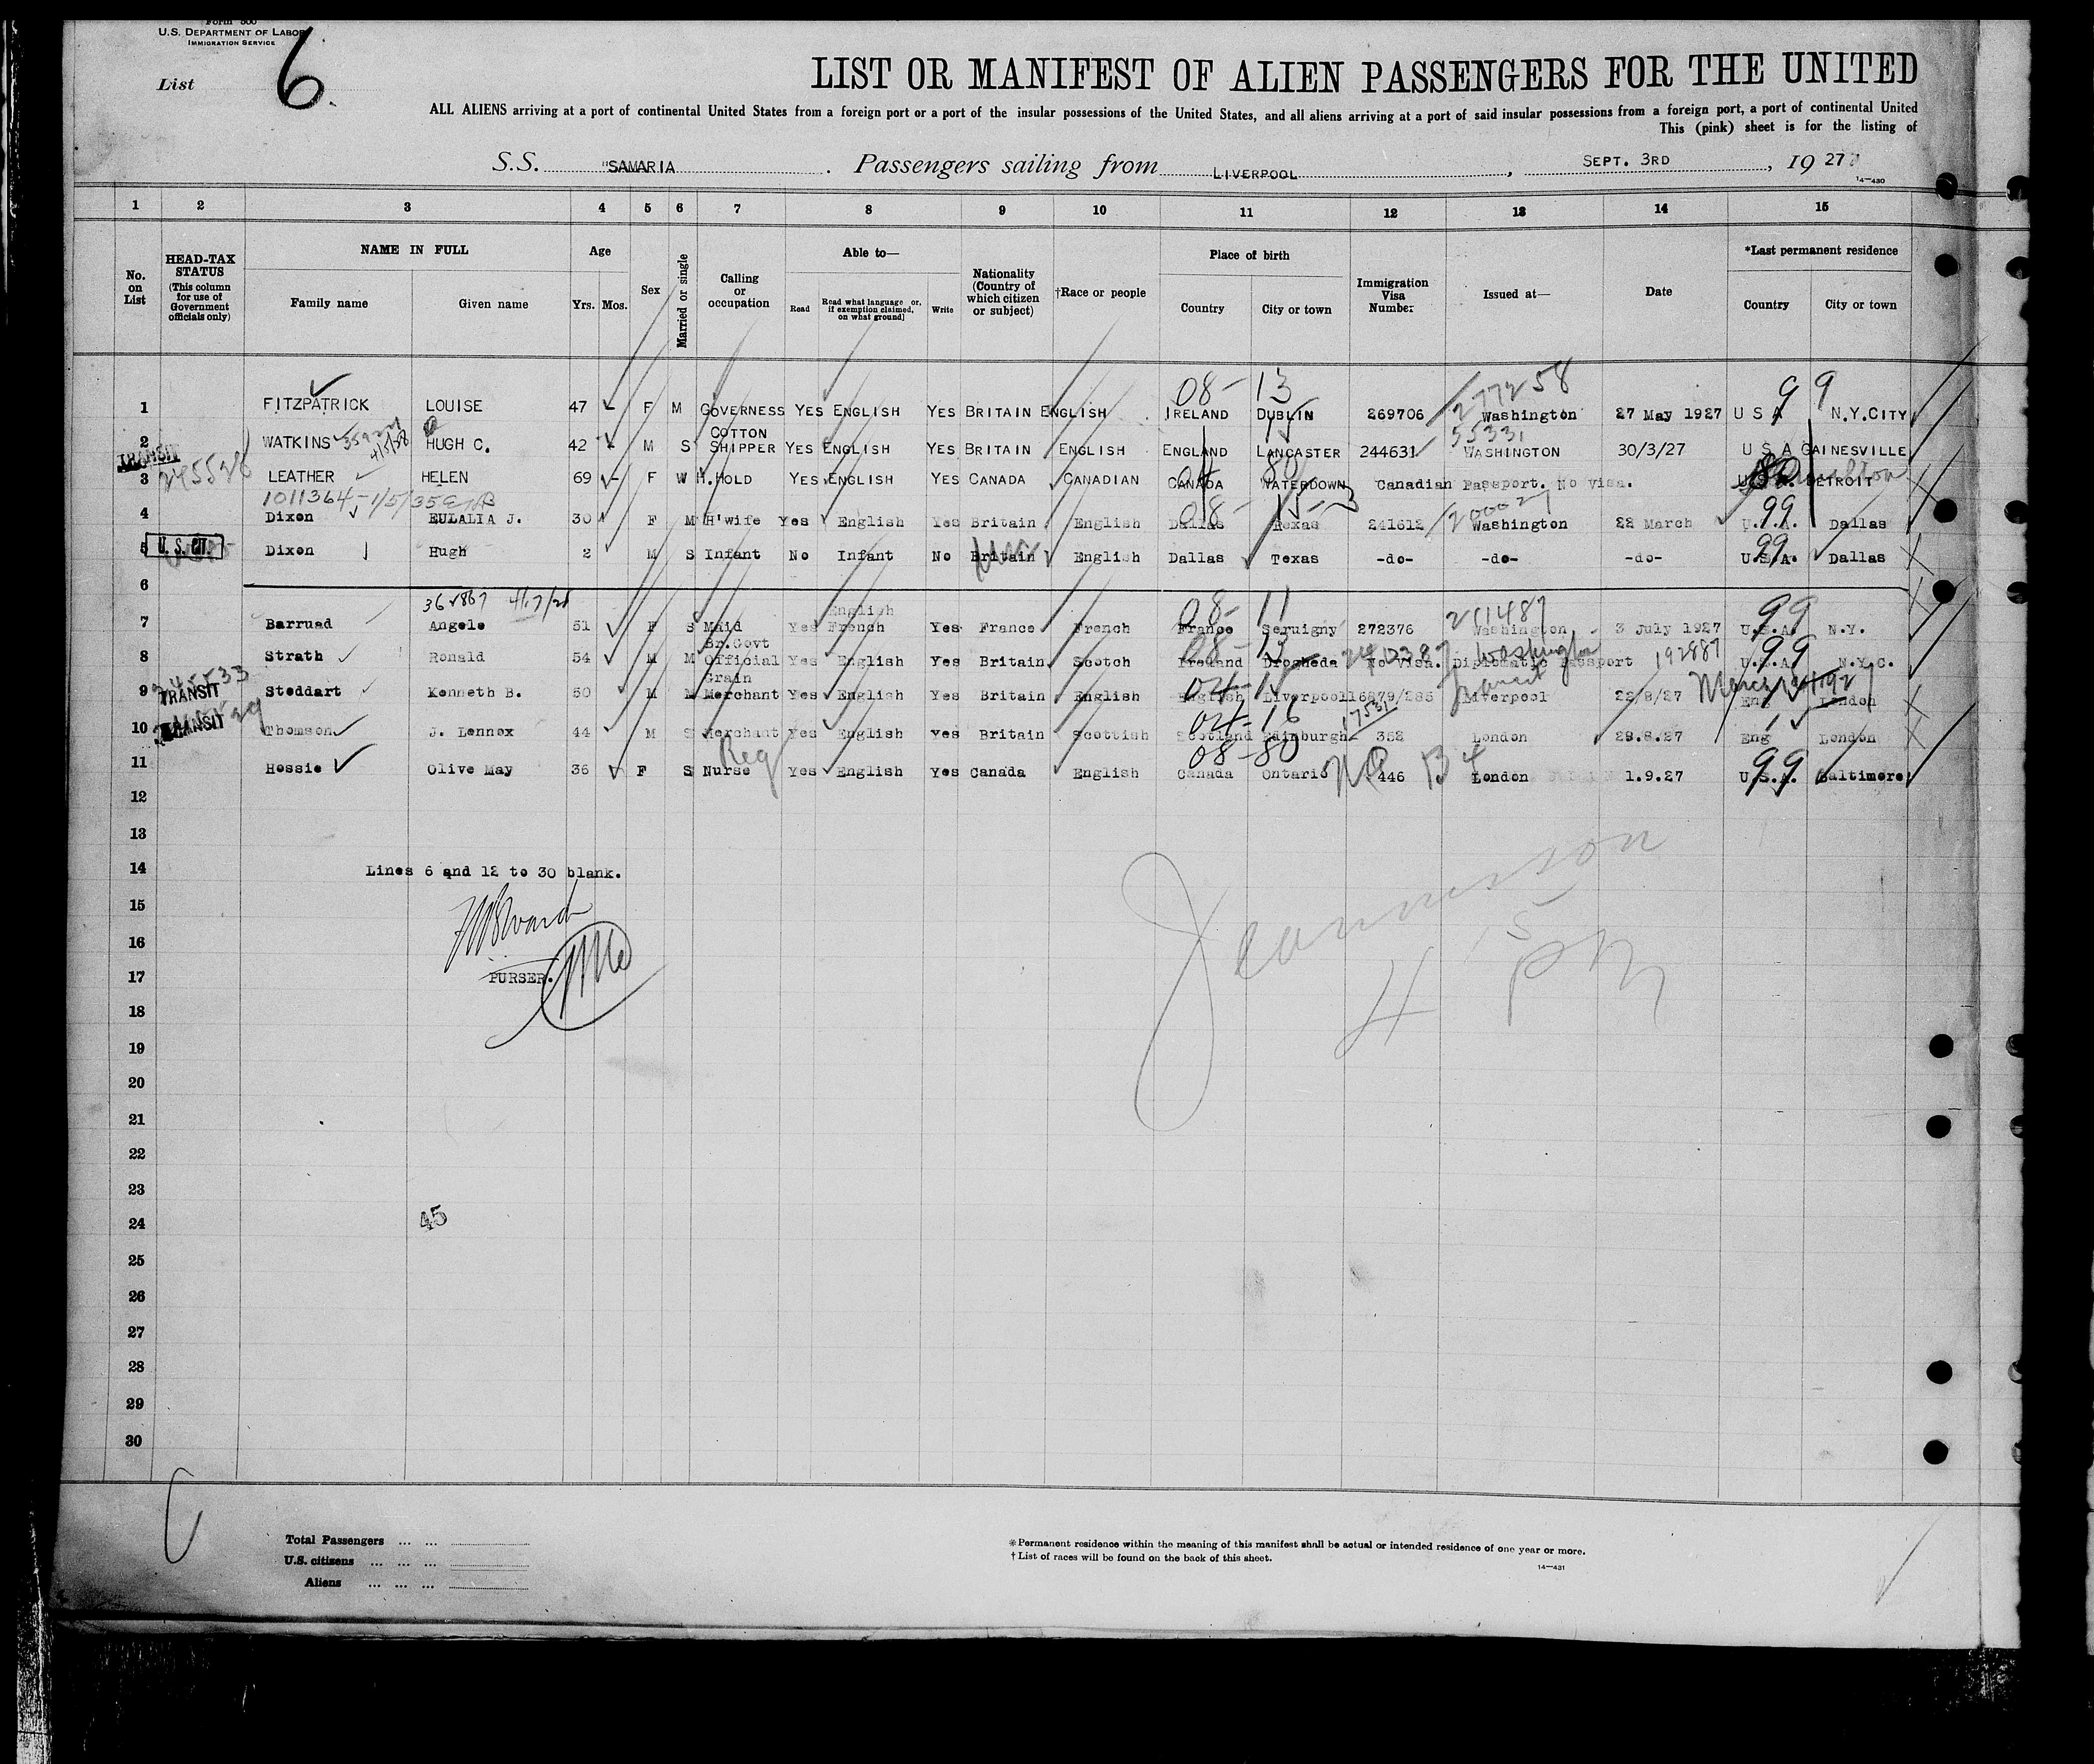 Form 500
U.S. DEPARTMENT OF LABOR
IMMIGRATION SERVICE
List 6
LIST OR MANIFEST OF ALIEN PASSENGERS FOR THE UNITED
ALL ALIENS arriving at a port of continental United States from a foreign port or a port of the insular possessions of the United States, and all aliens arriving at a port of said insular possessions from a foreign port, a port of continental United
This (pink) sheet is for the listing of
S.S. "SAMARIA . Passengers sailing from LIVERPOOL , SEPT. 3RD , 1927
14—430
1 2 3 4 5 6 7 8 9 10 11 12 13 14 15
No. on List
HEAD-TAX STATUS (This column for use of Government officials only)
NAME IN FULL
Family name Given name
Age
Yrs. Mos.
Sex
Married or single
Calling or occupation
Able to—
Read Read what language [or, if exemption claimed, on what ground] Write
Nationality (Country of which citizen or subject)
†Race or people
Place of birth
Country City or town
Immigration Visa Number
Issued at—
Date
*Last permanent residence
Country City or town
08-13 277258 99
1 FITZPATRICK LOUISE 47 F M GOVERNESS YES ENGLISH YES BRITAIN ENGLISH IRELAND DUBLIN 269706 Washington 27 May 1927 U S A N.Y.CITY
55331
2 WATKINS HUGH C. 42 M S COTTON SHIPPER YES ENGLISH YES BRITAIN ENGLISH ENGLAND LANCASTER 244631 WASHINGTON 30/3/27 U S A GAINESVILLE
TRANSIT
3 LEATHER HELEN 69 F W H.HOLD YES ENGLISH YES CANADA CANADIAN CANADA WATERDOWN Canadian Passport. No visa. U.S.A. DETROIT
1011364-1/5/35
4 Dixon EULALIA J. 30 F M H'wife Yes English Yes Britain English Dallas Texas 241612 Washington 22 March U.S.A. Dallas
99
5 U.S. CIT. Dixon Hugh 2 M S Infant No Infant No Britain English Dallas Texas -do- -do- -do- U.S.A. Dallas
99
6
08-11 211487 99
English
7 Barruad Angele 51 F S Maid Yes French Yes France French France Seruigny 272376 Washington 3 July 1927 U.S.A. N.Y.
08-13 Washington 192887 99
8 Strath Ronald 54 M M Br.Govt Official Yes English Yes Britain Scotch Ireland Drogheda No Visa. Diplomatic Passport U.S.A. N.Y.C.
TRANSIT
9 Stoddart Kenneth B. 50 M M Grain Merchant Yes English Yes Britain English English Liverpool 16879/285 Liverpool 22/8/27 Eng London
Transit
TRANSIT
04-16
10 Thomson J. Lennox 44 M S Merchant Yes English Yes Britain Scottish Scotland Edinburgh 352 London 29.8.27 Eng London
Reg 08-80
11 Hossie Olive May 36 F S Nurse Yes English Yes Canada English Canada Ontario 446 London 1.9.27 U.S.A. Baltimore
99
12
13
14 Lines 6 and 12 to 30 blank.
15
16
17 PURSER.
18
19
20
21
22
23
24 45
25
26
27
28
29
30
4 15 PM
Total Passengers ... ...
U.S. citizens ... ... ...
Aliens ... ... ...
*Permanent residence within the meaning of this manifest shall be actual or intended residence of one year or more.
†List of races will be found on the back of this sheet.
14—431